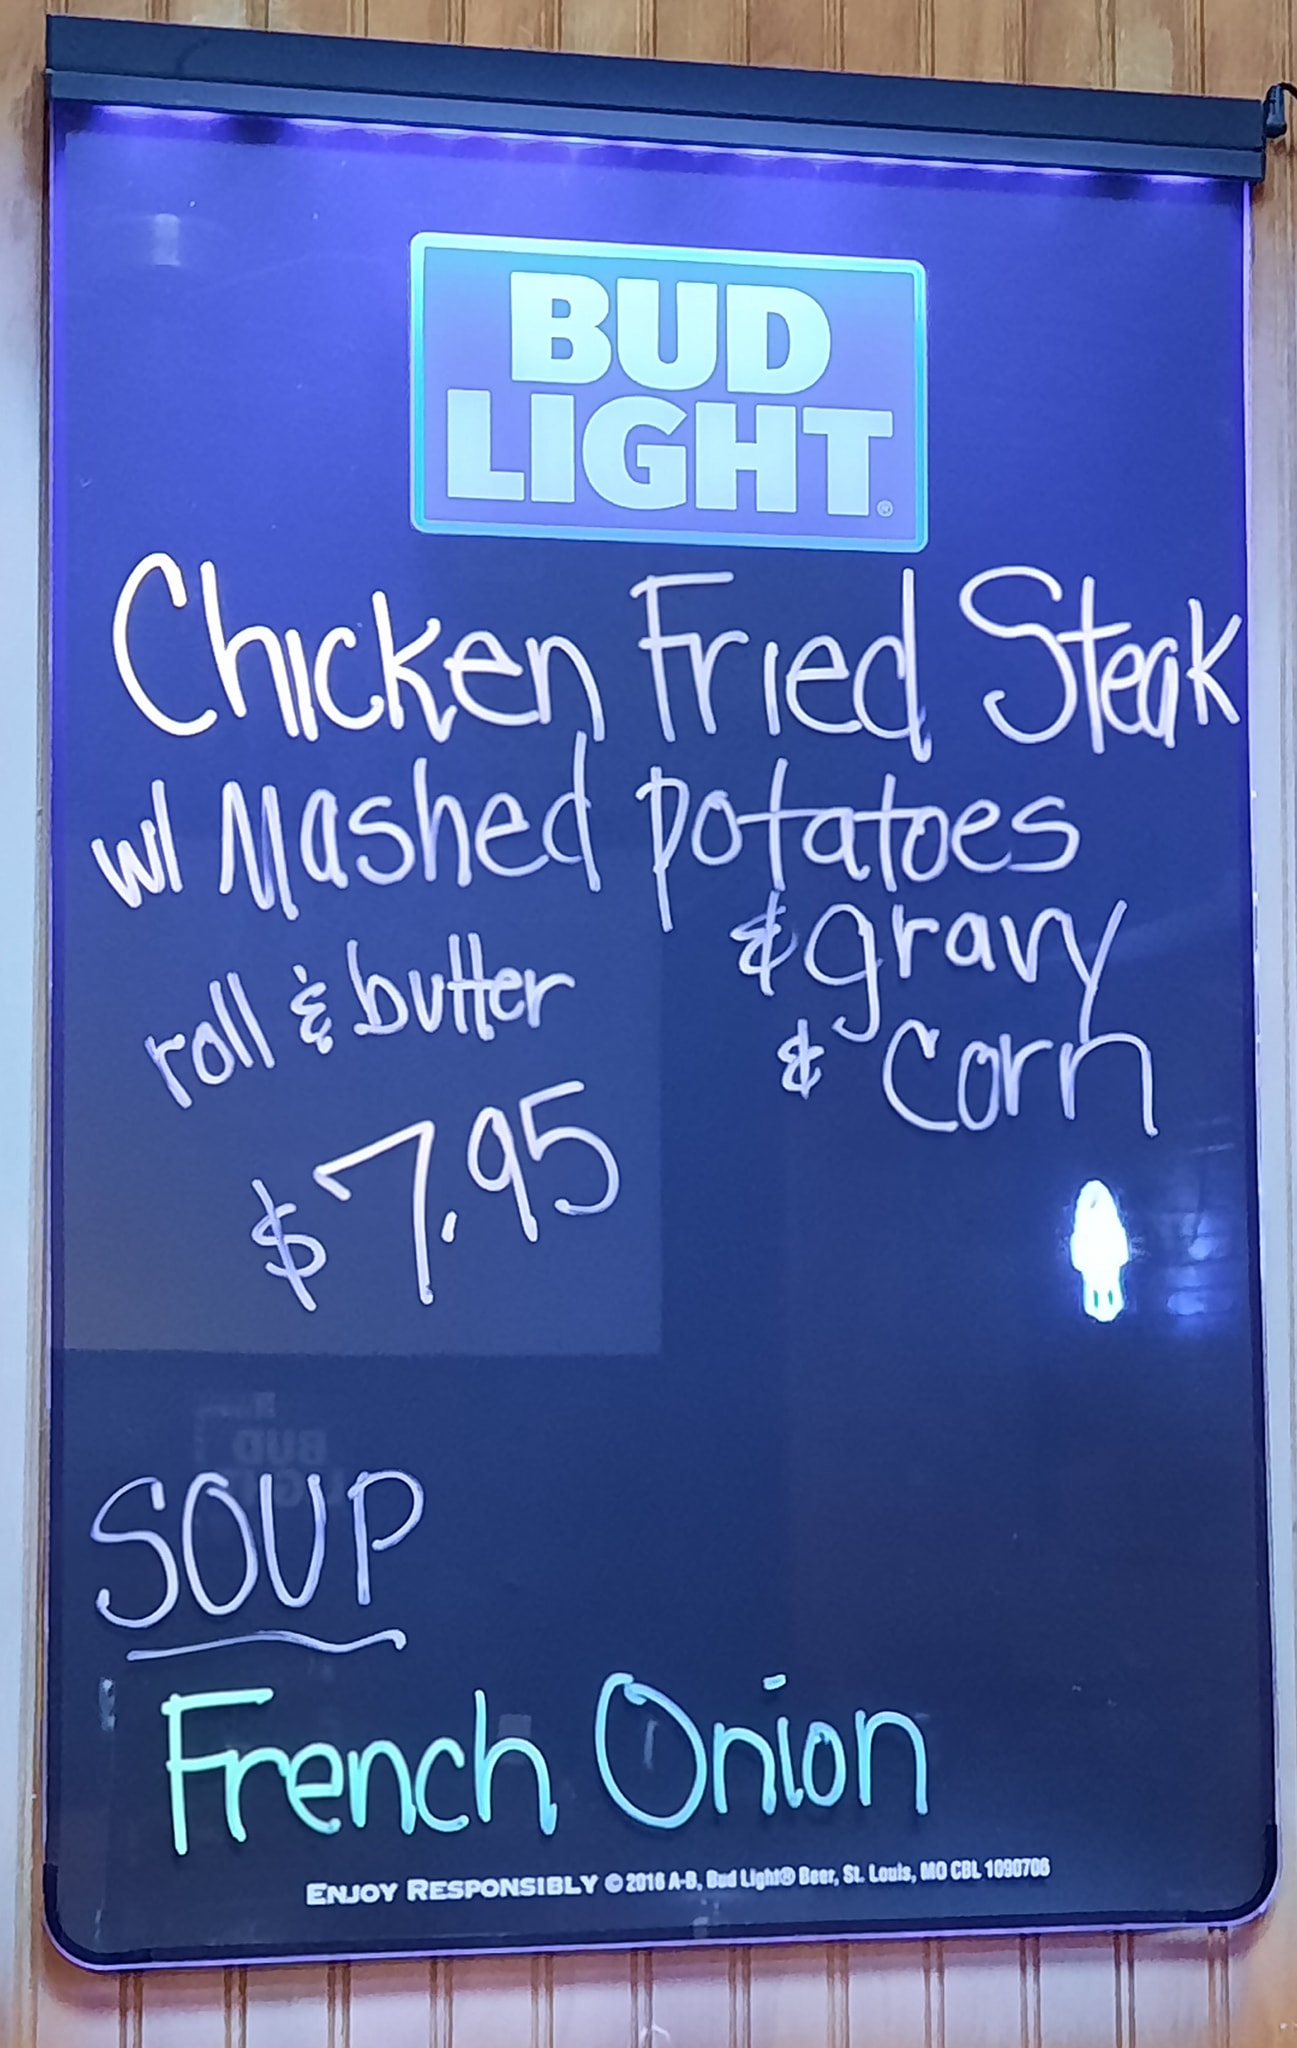 BUD
LIGHT®
Chicken Fried Steak
w/ Mashed potatoes
& gravy
& Corn
roll & butter
$7.95
SOUP
French Onion
ENJOY RESPONSIBLY © 2016 A-B, Bud Light® Beer, St. Louis, MO CBL 1090706